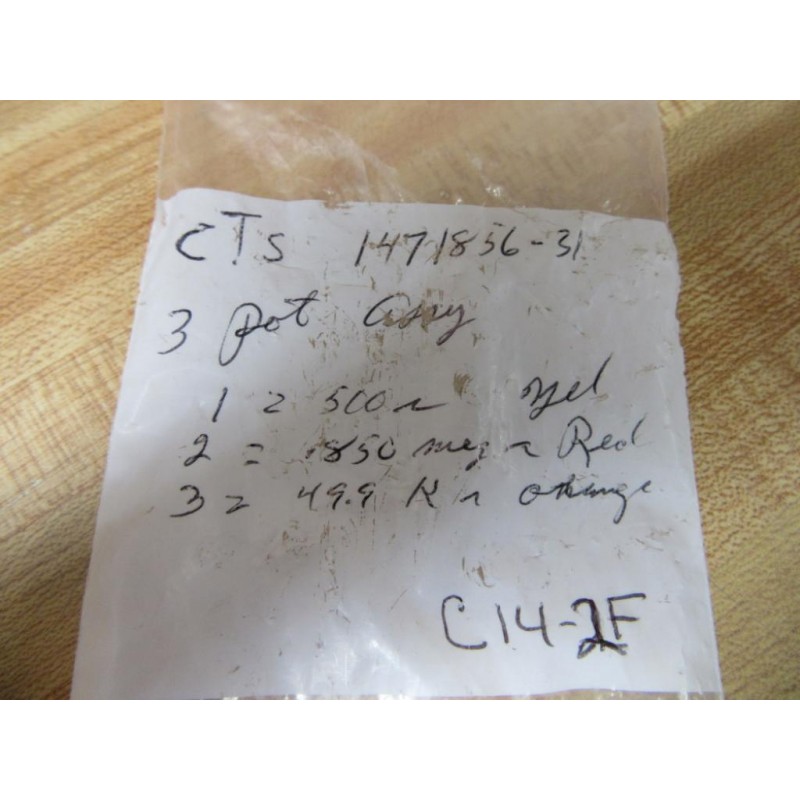 CTS 1471856-31
3 Pot Assy
1 = 500 Ω Yel
2 = .850 meg Ω Red
3 = 49.9 K Ω orange
C14-2F